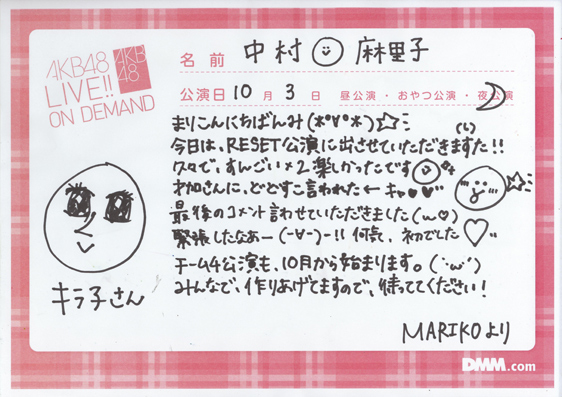 AKB48
LIVE!!
ON DEMAND
AKB
48
名前 中村 麻里子
公演日 10月 3日 昼公演・おやつ公演・夜公演
まりこんにちばんみ(*°∀°*)☆ミ
今日は、RESET公演に出させていただきますた!!
(し)
久々で、すんごい×2楽しかったです
さんに、どどすこ言われた←キャ♥♥"
最後のコメント言わせていただきました(ω♡)
緊張したなぁー(-∀-)-!! 何気、初でした♡"
チーム4公演も、10月から始まります。(`・ω・´)
みんなで、作りあげてますので、待っててください!
キラ子さん
MARIKOより
DMM.com